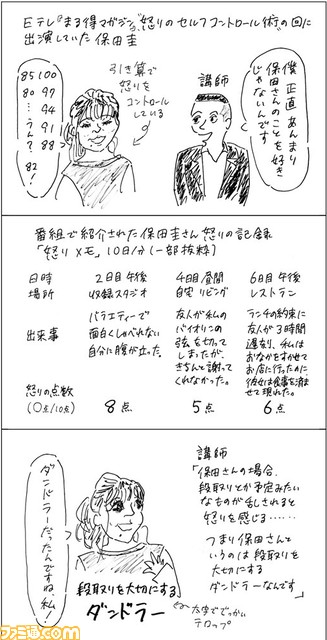 Eテレ『まる得マガジン』"怒りのセルフコントロール術"の回に
出演していた保田圭
講師
僕、正直あんまり
保田さんのことを好き
じゃないんです
引き算で
怒りを
コントロール
している
100
97
94
91
88
85
80
…うん?
82!
番組で紹介された保田圭さん怒りの記録
「怒りメモ」10日分(一部抜粋)
日時 2日目午後 4日目昼間 6日目午後
場所 収録スタジオ 自宅リビング レストラン
出来事
バラエティーで
面白くしゃべれない
自分に腹が立った。
友人が私の
バイオリンの
弦を切って
しまったが、
きちんと謝って
くれなかった。
ランチの約束に
友人が3時間
遅刻、私は
おなかをすかせて
お店に行ったのに、
彼女は食事を済ま
せて現れた。
怒りの点数
(○点/10点) 8点 5点 6点
講師
「保田さんの場合、
段取りとか予定みたい
なものが乱されると
怒りを感じる……
つまり保田さんと
いうのは段取りを
大切にする
ダンドラーなんです」
ダンドラーだったんですね、私!
段取りを大切にする
ダンドラー
太字ででっかい
テロップ
ファミ通.com